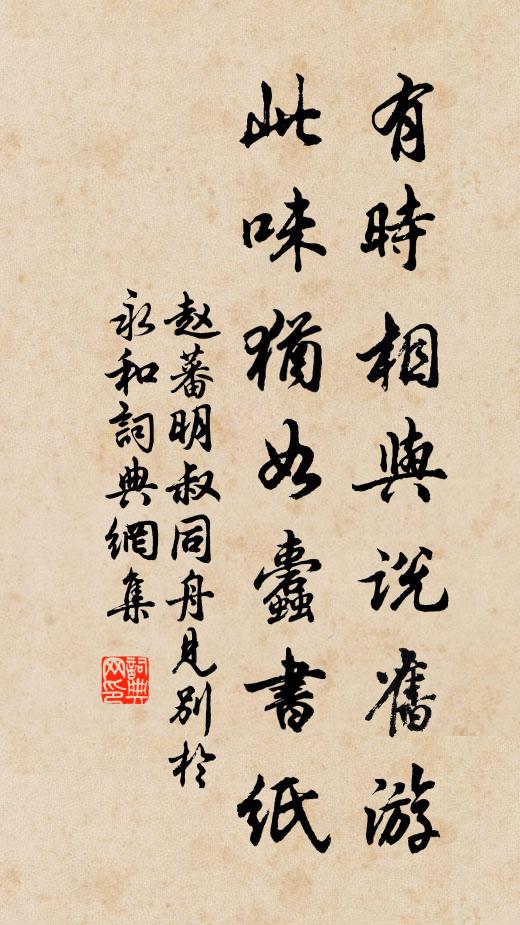 有時相與說舊游
此味猶如蠹書紙
赵蕃明叔同舟见别於
永和詞典網集
詞典网印